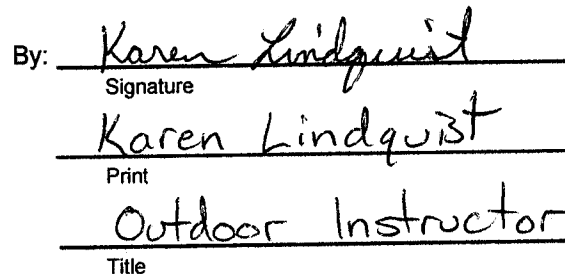 By: Karen Lindquist
Signature
Karen Lindquist
Print
Outdoor Instructor
Title